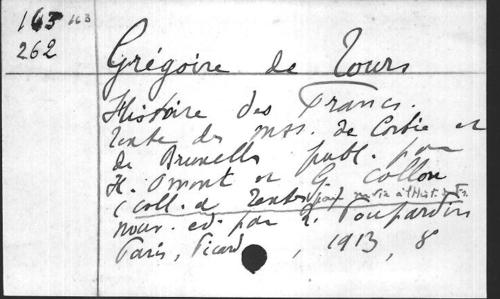 163 163
262
Grégoire de Tours
Histoire des Francs.
Texte des mss. de Corbie et
de Bruxelles publ. par
H. Omont et G. Collon
(Coll. de Textes pour servir à l'Hist.
nouv. ed. par R. Poupardin
Paris, Picard, 1913, 8